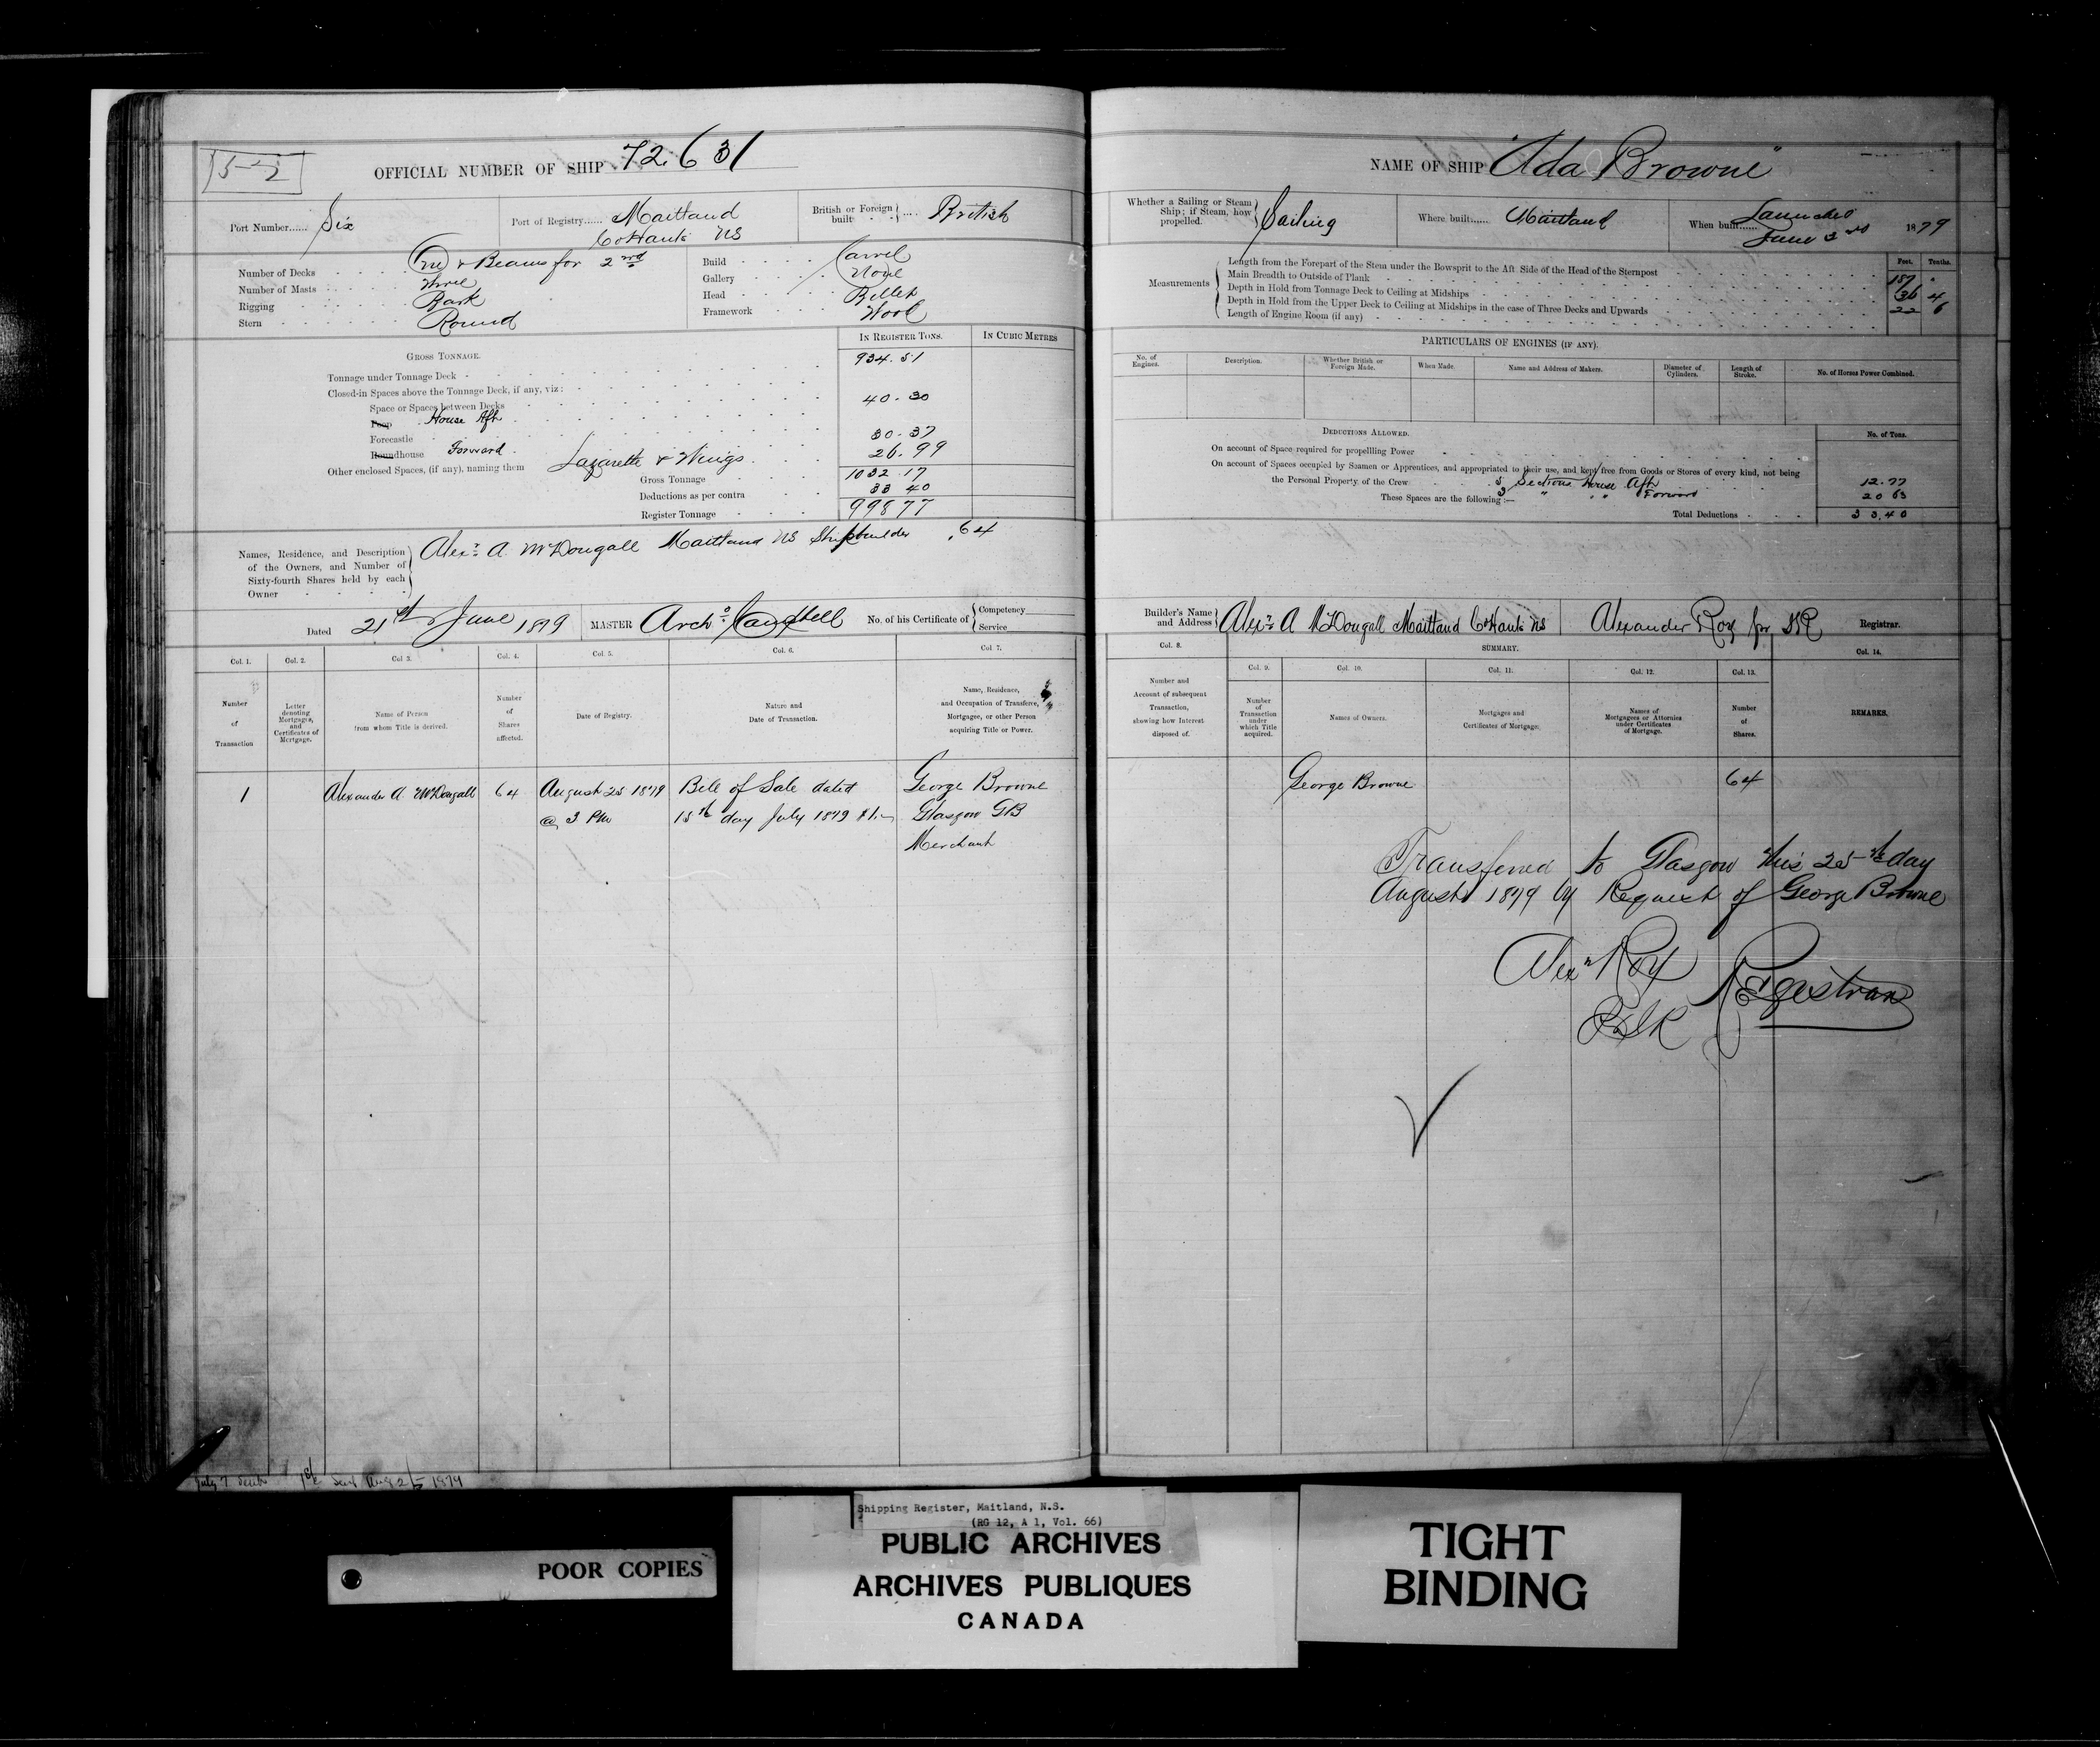 OFFICIAL NUMBER OF SHIP 72.631
Port Number...... Six
Port of Registry...... Maitland
Co Hants NS
British or Foreign built .... British
Number of Decks One & Beams for 2nd
Number of Masts Three
Rigging Bark
Stern Round
Build Carvel
Gallery None
Head Billet
Framework Wood
IN REGISTER TONS.
IN CUBIC METRES
GROSS TONNAGE.
Tonnage under Tonnage Deck 934.51
Closed-in Spaces above the Tonnage Deck, if any, viz:
Space or Spaces between Decks
Poop House Aft 40.30
Forecastle
Roundhouse Forward 30.37
Other enclosed Spaces, (if any), naming them Lazarette & Wings 26.99
Gross Tonnage 1032.17
Deductions as per contra 33 40
Register Tonnage 998 77
Names, Residence, and Description of the Owners, and Number of Sixty-fourth Shares held by each Owner
Alexr A McDougall Maitland NS Shipbuilder 64
Dated 21st June 1879
MASTER Archd Campbell
No. of his Certificate of
Competency
Service
Col. 1.
Col. 2.
Col. 3.
Col. 4.
Col. 5.
Col. 6.
Col. 7.
Number of Transaction
Letter denoting Mortgages, and Certificates of Mortgage.
Name of Person from whom Title is derived.
Number of Shares affected.
Date of Registry.
Nature and Date of Transaction.
Name, Residence, and Occupation of Transferee, Mortgagee, or other Person acquiring Title or Power.
1 Alexander A McDougall 64 August 25 1879 Bill of Sale dated George Browne
@ 3 PM 15th day July 1879 Glasgow GB
Merchant
July 7
Sent Aug 25 1879
NAME OF SHIP "Ada Browne"
Whether a Sailing or Steam Ship; if Steam, how propelled. Sailing
Where built...... Maitland
When built...... Launched
June 3rd 1879
Measurements
Feet. Tenths.
Length from the Forepart of the Stem under the Bowsprit to the Aft Side of the Head of the Sternpost 187 .
Main Breadth to Outside of Plank 36 4
Depth in Hold from Tonnage Deck to Ceiling at Midships 22 6
Depth in Hold from the Upper Deck to Ceiling at Midships in the case of Three Decks and Upwards
Length of Engine Room (if any)
PARTICULARS OF ENGINES (IF ANY).
No. of Engines.
Description.
Whether British or Foreign Made.
When Made.
Name and Address of Makers.
Diameter of Cylinders.
Length of Stroke.
No. of Horses Power Combined.
DEDUCTIONS ALLOWED.
No. of Tons.
On account of Space required for propelling Power
On account of Spaces occupied by Seamen or Apprentices, and appropriated to their use, and kept free from Goods or Stores of every kind, not being
the Personal Property of the Crew Sections House Aft 12.77
These Spaces are the following:— " " Forward 20 63
Total Deductions 33.40
Builder's Name and Address Alexr A McDougall Maitland Co Hants NS
Alexander Roy for Registrar.
Col. 8.
SUMMARY.
Col. 14.
Col. 9.
Col. 10.
Col. 11.
Col. 12.
Col. 13.
Number and Account of subsequent Transaction, showing how Interest disposed of.
Number of Transaction under which Title acquired.
Names of Owners.
Mortgages and Certificates of Mortgage.
Names of Mortgagees or Attornies under Certificates of Mortgage.
Number of Shares.
REMARKS.
George Browne 64
Transferred to Glasgow this 25th day
August 1879 by Request of George Browne
Alexr Roy
Registrar
Shipping Register, Maitland, N.S.
(RG 12, A 1, Vol. 66)
PUBLIC ARCHIVES
ARCHIVES PUBLIQUES
CANADA
POOR COPIES
TIGHT
BINDING